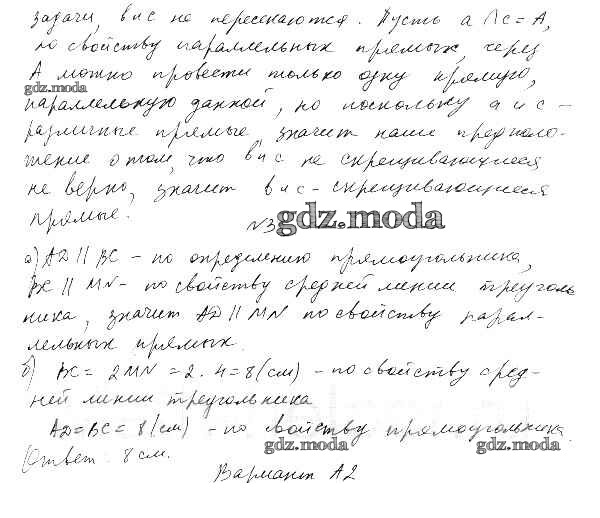 задачи, в и с не пересекаются. Пусть a ∩ c = A,
по свойству параллельных прямых, через
А можно провести только одну прямую,
gdz.moda
параллельную данной, но поскольку а и с -
различные прямые, значит наше предполо-
жение о том, что в и с не скрещивающиеся
не верно, значит в и с - скрещивающиеся
прямые.
№3 gdz.moda
а) AD || BC - по определению прямоугольника,
BC || MN - по свойству средней линии треуголь
ника, значит AD || MN по свойству парал-
лельных прямых.
б) BC = 2MN = 2 · 4 = 8 (см) - по свойству сред-
ней линии треугольника
AD = BC = 8 (см) - по свойству прямоугольника
gdz.moda gdz.moda
Ответ: 8 см.
Вариант А2